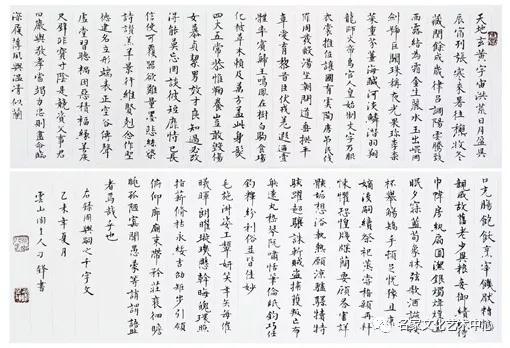 天地玄黃宇宙洪荒日月盈昃
辰宿列張寒來暑往秋收冬
藏閏餘成歲律呂調陽雲騰致
雨露結為霜金生麗水玉出崑岡
劍號巨闕珠稱夜光果珍李柰
菜重芥薑海鹹河淡鱗潛羽翔
龍師火帝鳥官人皇始制文字乃服
衣裳推位讓國有虞陶唐弔民伐
罪周發殷湯坐朝問道垂拱平
章愛育黎首臣伏戎羌遐邇壹
體率賓歸王鳴鳳在樹白駒食場
化被草木賴及萬方蓋此身髮
四大五常恭惟鞠養豈敢毀傷
女慕貞絜男效才良知過必改
得能莫忘罔談彼短靡恃己長
信使可覆器欲難量墨悲絲染
詩讚羔羊景行維賢剋念作聖
德建名立形端表正空谷傳聲
虛堂習聽禍因惡積福緣善慶
尺璧非寶寸陰是競資父事君
曰嚴與敬孝當竭力忠則盡命臨
深履薄夙興溫凊似蘭
口充腸飽飫烹宰饑厭糟糠
親戚故舊老少異糧妾御績紡侍
巾帷房紈扇圓潔銀燭煒煌晝
眠夕寐藍筍象床弦歌酒讌接
杯舉觴矯手頓足悅豫且康
嫡後嗣續祭祀蒸嘗稽顙再拜
悚懼恐惶牋牒簡要顧答審詳
骸垢想浴執熱願涼驢騾犢特
駭躍超驤誅斬賊盜捕獲叛亡布
射遼丸嵇琴阮嘯恬筆倫紙鈞巧任
釣釋紛利俗並皆佳妙
毛施淑姿工顰妍笑年矢每催
曦暉朗曜璇璣懸斡晦魄環照
指薪修祜永綏吉劭矩步引領
俯仰廊廟束帶矜莊徘徊瞻
眺孤陋寡聞愚蒙等誚謂語助
者焉哉乎也
右錄周興嗣之千字文
乙未年夏月
雲山人刁鋒書
名家文化艺术中心